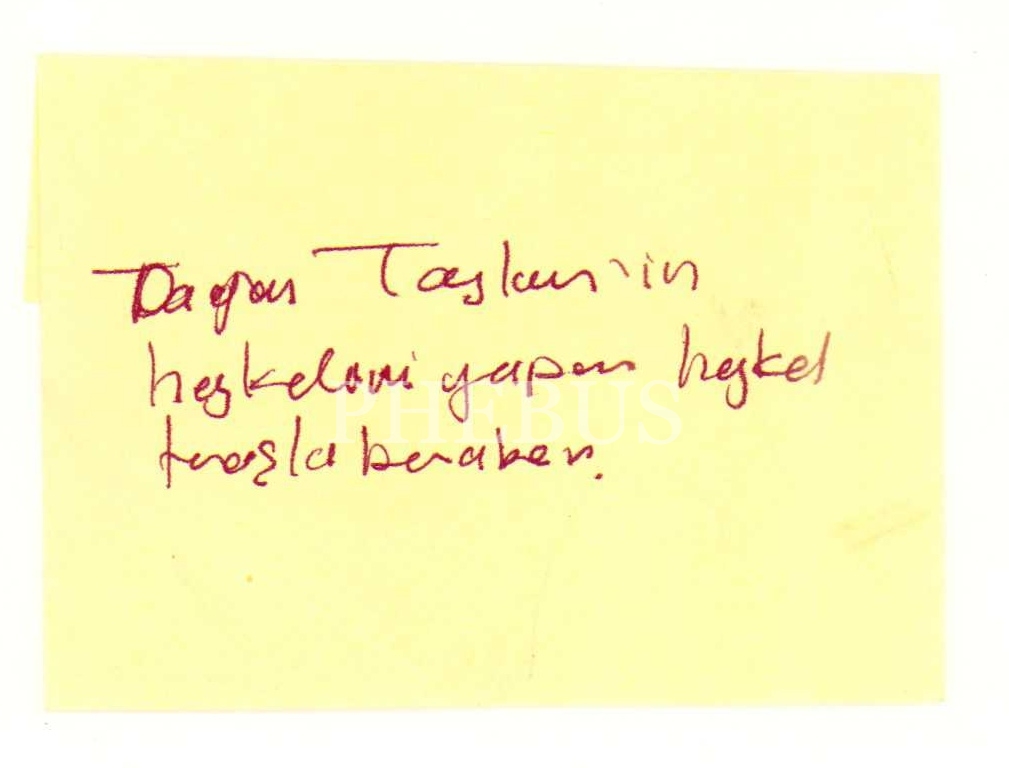 Doğan Taşkın'ın
heykelini yapan heykel
traşla beraber.
PHEBUS